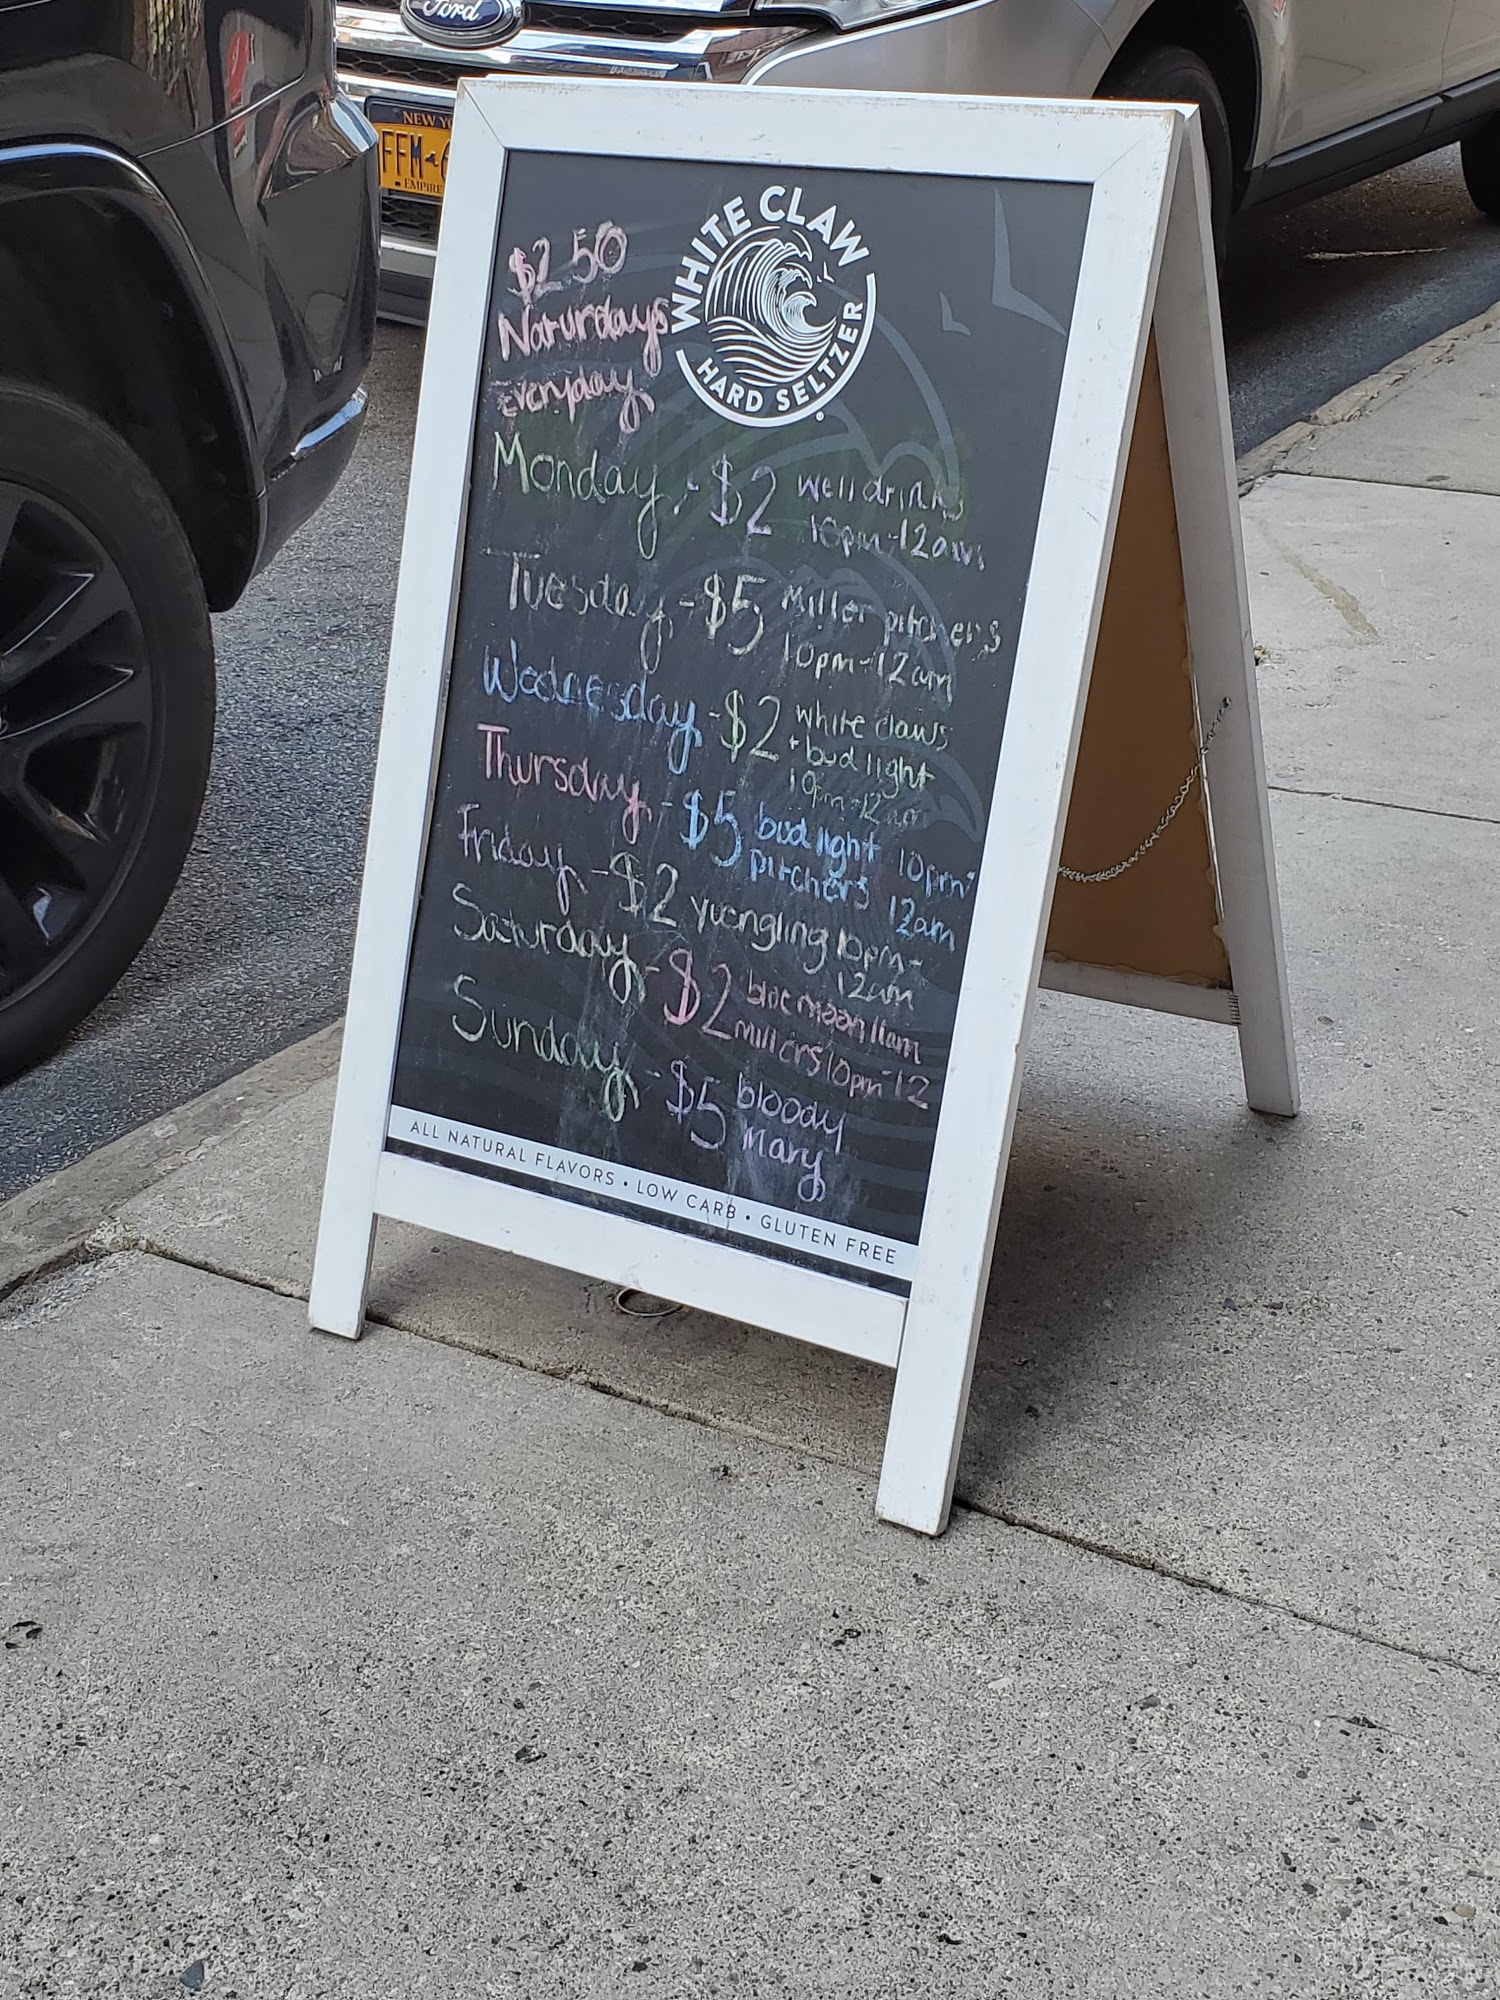 Ford
NEW YO
FFM
EMPIRE
WHITE CLAW
HARD SELTZER
$2.50
Naturdays
everyday
Monday - $2 well drinks
10pm-12am
Tuesday - $5 Miller pitchers
10pm-12am
Wednesday - $2 white claws
+ bud light
10pm-12am
Thursday - $5 bud light 10pm-
pitchers 12am
Friday - $2 yuengling 10pm-
12am
Saturday - $2 blue moon 11am
millers 10pm-12
Sunday - $5 bloody
mary
ALL NATURAL FLAVORS • LOW CARB • GLUTEN FREE